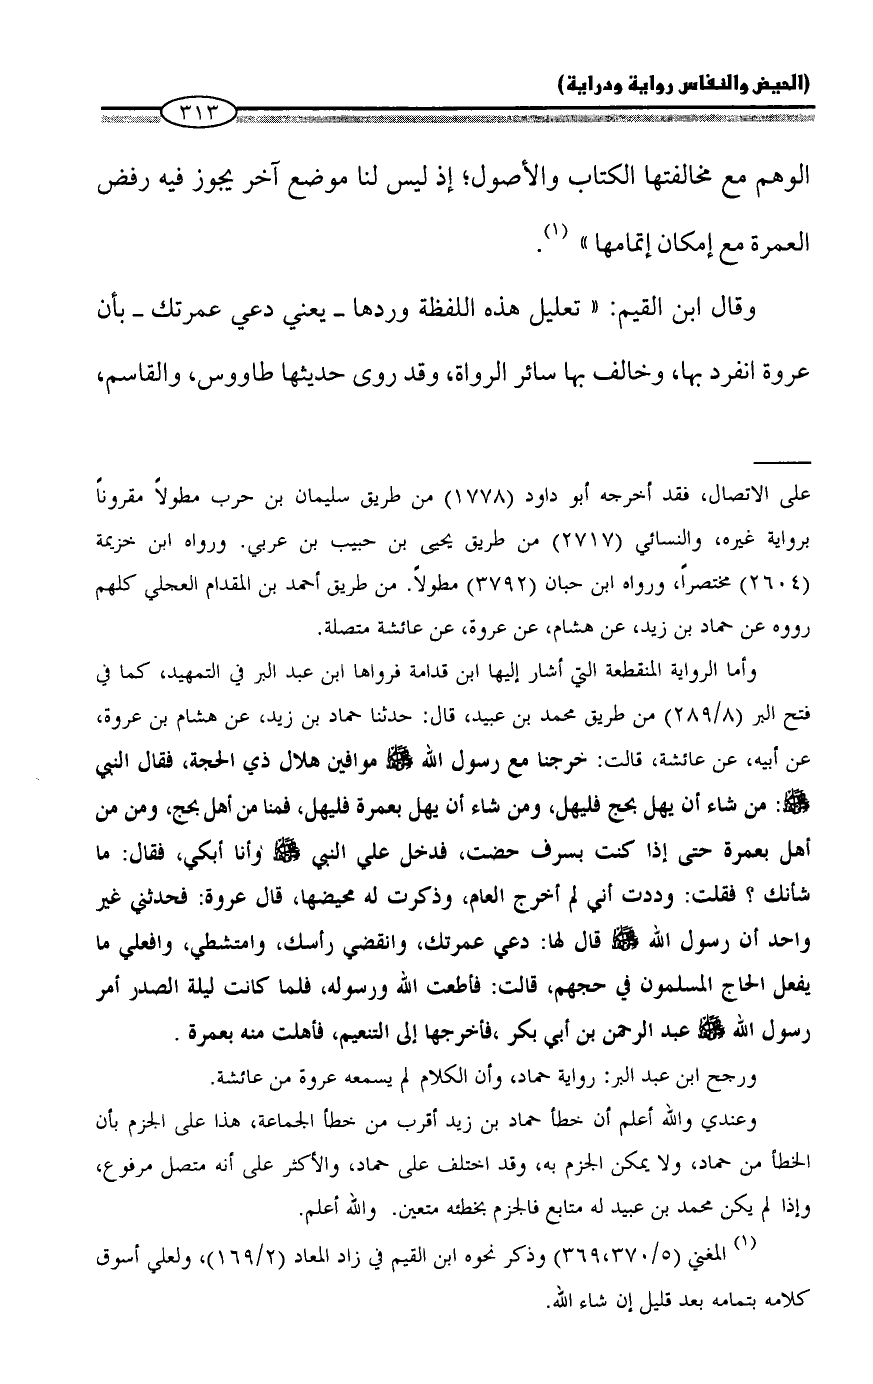 (الحيض والنفاس رواية ودراية)
٣١٣
الوهم مع مخالفتها الكتاب والأصول؛ إذ ليس لنا موضع آخر يجوز فيه رفض
العمرة مع إمكان إتمامها » (١).
وقال ابن القيم: « تعليل هذه اللفظة وردها ـ يعني دعي عمرتك ـ بأن
عروة انفرد بها، وخالف بها سائر الرواة، وقد روى حديثها طاووس، والقاسم،
على الاتصال، فقد أخرجه أبو داود (١٧٧٨) من طريق سليمان بن حرب مطولاً مقروناً
برواية غيره، والنسائي (٢٧١٧) من طريق يحيى بن حبيب بن عربي. ورواه ابن خزيمة
(٢٦٠٤) مختصراً، ورواه ابن حبان (٣٧٩٢) مطولاً. من طريق أحمد بن المقدام العجلي كلهم
رووه عن حماد بن زيد، عن هشام، عن عروة، عن عائشة متصلة.
وأما الرواية المنقطعة التي أشار إليها ابن قدامة فرواها ابن عبد البر في التمهيد، كما في
فتح البر (٢٨٩/٨) من طريق محمد بن عبيد، قال: حدثنا حماد بن زيد، عن هشام بن عروة،
عن أبيه، عن عائشة، قالت: خرجنا مع رسول الله ﷺ موافين هلال ذي الحجة، فقال النبي
ﷺ: من شاء أن يهل بحج فليهل، ومن شاء أن يهل بعمرة فليهل، فمنا من أهل بحج، ومن من
أهل بعمرة حتى إذا كنت بسرف حضت، فدخل علي النبي ﷺ وأنا أبكي، فقال: ما
شأنك ؟ فقلت: وددت أني لم أخرج العام، وذكرت له محيضها، قال عروة: فحدثني غير
واحد أن رسول الله ﷺ قال لها: دعي عمرتك، وانقضي رأسك، وامتشطي، وافعلي ما
يفعل الحاج المسلمون في حجهم، قالت: فأطعت الله ورسوله، فلما كانت ليلة الصدر أمر
رسول الله ﷺ عبد الرحمن بن أبي بكر ،فأخرجها إلى التنعيم، فأهلت منه بعمرة .
ورجح ابن عبد البر: رواية حماد، وأن الكلام لم يسمعه عروة من عائشة.
وعندي والله أعلم أن خطأ حماد بن زيد أقرب من خطأ الجماعة، هذا على الجزم بأن
الخطأ من حماد، ولا يمكن الجزم به، وقد اختلف على حماد، والأكثر على أنه متصل مرفوع،
وإذا لم يكن محمد بن عبيد له متابع فالجزم بخطئه متعين. والله أعلم.
(١) المغني (٣٦٩،٣٧٠/٥) وذكر نحوه ابن القيم في زاد المعاد (١٦٩/٢)، ولعلي أسوق
كلامه بتمامه بعد قليل إن شاء الله.